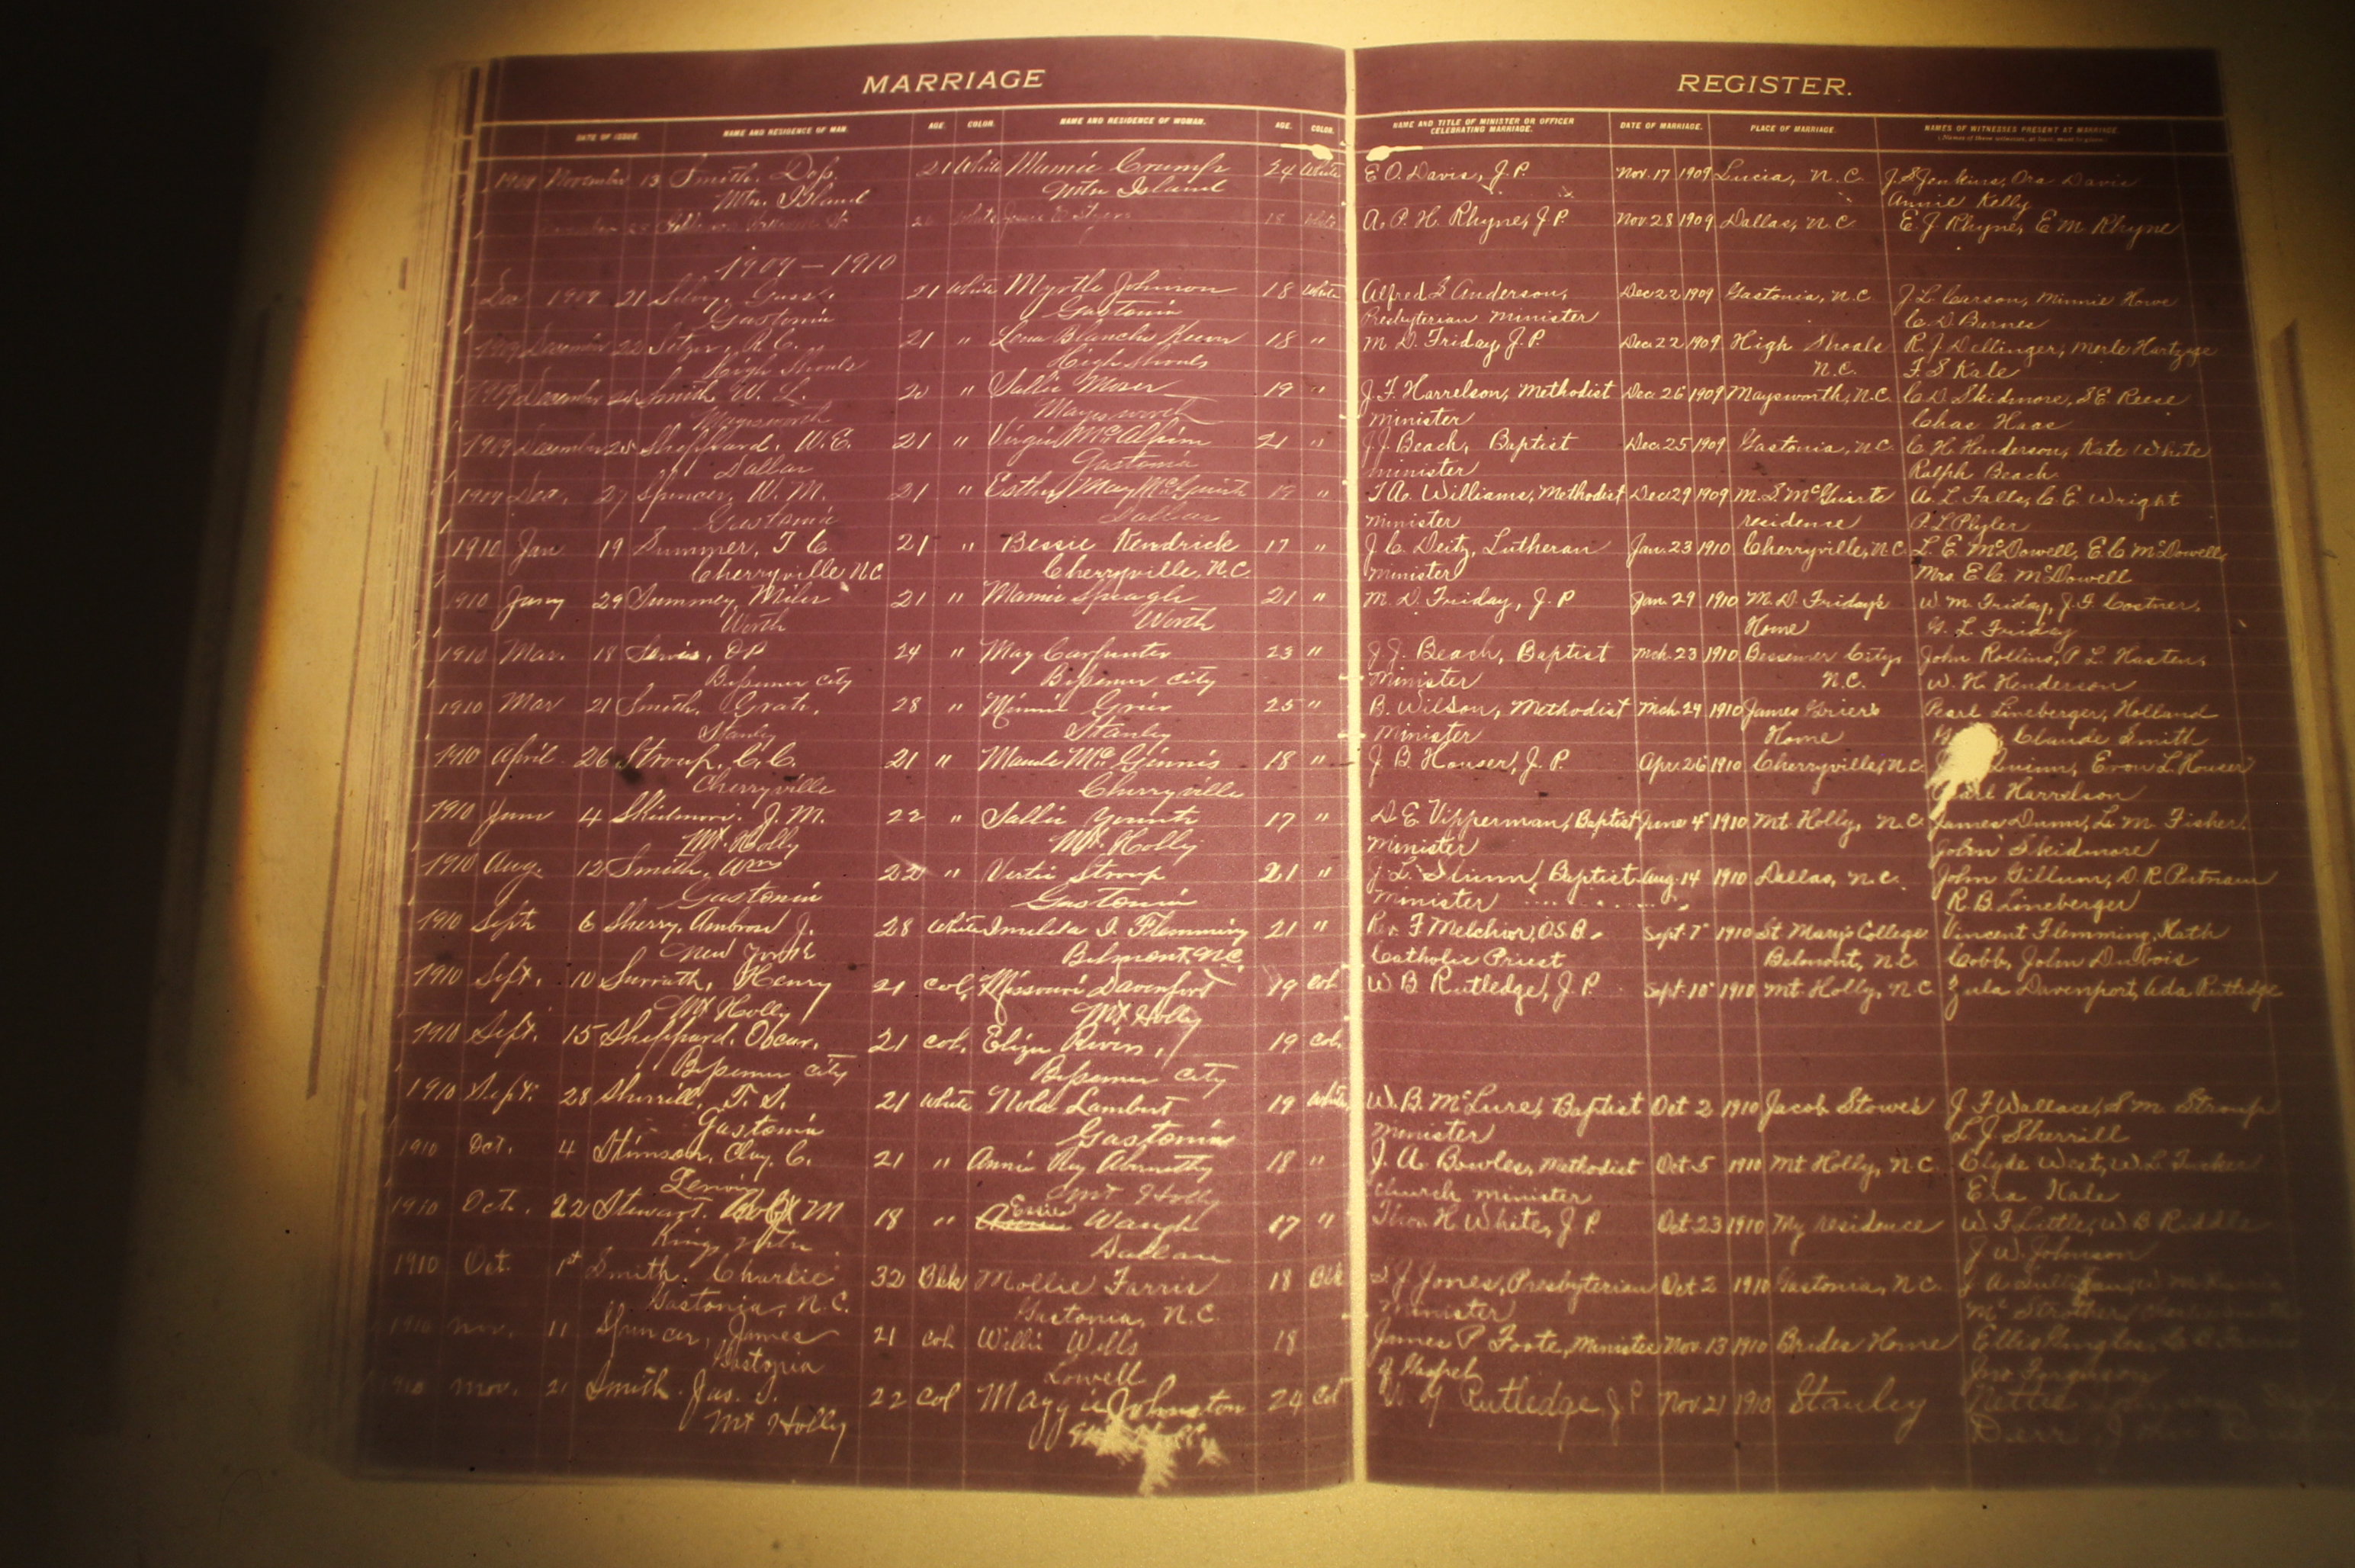 MARRIAGE REGISTER.
DATE OF ISSUE. NAME AND RESIDENCE OF MAN. AGE. COLOR. NAME AND RESIDENCE OF WOMAN. AGE. COLOR. NAME AND TITLE OF MINISTER OR OFFICER CELEBRATING MARRIAGE. DATE OF MARRIAGE. PLACE OF MARRIAGE. NAMES OF WITNESSES PRESENT AT MARRIAGE.
1909 November 13 Smith, 21 White Mamie Crump 24 White E O. Davis, J. P. Nov. 17 1909 Lucia, N. C. J. S. Jenkins, Ora Davis
Mtn. Island Mtn Island Annie Kelly
White 18 White A. P. H. Rhyne, J. P. Nov 28 1909 Dallas, N. C. E. J. Rhyne, E M Rhyne
1909 – 1910
Dec 1909 21 21 White Myrtle Johnson 18 White Alfred S Anderson, Dec 22 1909 Gastonia, N. C J. L. Carson, Minnie Howe
Gastonia Gastonia Presbyterian Minister C. D. Barnes
1909 December 22 Setzer, R. C. 21 " Lena Blanche 18 " M. D. Friday, J. P. Dec. 22 1909 High Shoals R. J. Dellinger, Merle
High Shoals High Shoals N. C. F. S Kale
1909 December 24 Smith W. L. 20 " Sallie Moser 19 " J. F. Harrelson, Methodist Dec. 26 1909 Maysworth, N. C. C. D. Skidmore, S E. Reese
Maysworth Maysworth Minister Chas Haas
1909 December 25 Sheppard, W. E. 21 " Virgie 21 " J. J. Beach, Baptist Dec. 25 1909 Gastonia, N. C. C. H. Henderson, Kate White
Dallas Gastonia Minister Ralph Beach
1909 Dec, 27 Spencer, W. M. 21 " Esther May 19 " Williams, Methodist Dec 29 1909 M. S. McGuirte A. L. Falls, C. E. Wright
Gastonia Dallas Minister residence P. L Plyler
1910 Jan 19 Summer, T C 21 " Bessie Kendrick 17 " J. C. Deitz, Lutheran Jan. 23 1910 Cherryville, N. C. L. E. McDowell, E. C McDowell,
Cherryville N. C. Cherryville, N. C. Minister Mrs. E. C. McDowell
1910 29 Summey, Miles 21 " Mamie 21 " M. D. Friday, J. P Jan. 29 1910 M. D. Friday's W. M. Friday, J. F. Costner,
Worth Worth Home L Friday
1910 Mar. 18 Lewis, 24 " May Carpenter 23 " J. J. Beach, Baptist Mch. 23 1910 Bessemer City, John Rollins, P. L. Hasten,
Bessemer City Bessemer City Minister N. C. W. H. Henderson
1910 Mar 21 Smith, Grat. 28 " Minnie Grier 25 " B. Wilson, Methodist Mch. 24 1910 James Grier's Pearl Lineberger, Holland
Stanley Stanley Minister Home Claude Smith
1910 April. 26 Stroup, C. C. 21 " Maude McGinnis 18 " J. B. Houser, J. P. Apr. 26 1910 Cherryville, N. C. Quinn, Evon L. Houser
Cherryville Cherryville Harrelson
1910 June 4 Skidmore. J. M. 22 " Sallie 17 " D. E Vipperman, Baptist June 4 1910 Mt Holly, N. C. James Dunn, L. M. Fisher.
Mt. Holly Mt. Holly Minister John Skidmore
1910 Aug. 12 Smith, Wm 22 " Vertie Stroup 21 " J. L. Baptist Aug. 14 1910 Dallas, N. C. John Gillum, D. R Putnam
Gastonia Gastonia Minister R. B. Lineberger
1910 Sept 6 Sherry, Ambrose J. 28 White Imelda I. Flemming 21 " Rev. F Melchior, O. S. B. Sept. 7 1910 St Mary's College Vincent Flemming, Kath
New York Belmont, N. C. Catholic Priest Belmont, N. C. Cobb, John DuBois
1910 Sept. 10 Henry 21 Col. Missouri Davenport 19 Col W B Rutledge, J. P. Sept. 10 1910 Mt. Holly, N. C. Zula Davenport, Ada Rutledge
Mt Holly Mt Holly
1910 Sept. 15 Sheppard. Oscar. 21 Col. Eliza 19 Col.
Bessemer City Bessemer City
1910 Sept. 28 Sherrill, T. S. 21 White Nola Lambert 19 White W. B. McLure, Baptist Oct 2 1910 Jacob Stowe's J F Wallace, S M. Stroup
Gastonia Gastonia Minister L. J. Sherrill
1910 Oct. 4 Stimson, Clay. C. 21 " Annie Abernethy 18 " J. A. Bowles, Methodist Oct 5 1910 Mt Holly, N. C. Clyde West, W. L. Tucker
Lenoir Mt Holly Church Minister Era Kale
1910 Oct. 22 Stewart. M 18 " Waugh 17 " Thos. H White, J. P. Oct. 23 1910 My residence W F Little, W B Riddle
Kings Mtn. Dallas J W. Johnson
1910 Oct. 1st Smith. Charlie 32 Blk Mollie Farris 18 Blk J. Jones, Presbyterian Oct 2 1910 Gastonia, N. C.
Gastonia, N. C. Gastonia, N. C. Minister
1910 Nov. 11 Spencer, James 21 Col Willie Wells 18 James P Foote, Minister Nov. 13 1910 Brides Home
Gastonia Lowell of Gospel Jno Ferguson
1910 Nov. 21 Smith. Jas. 22 Col Maggie Johnston 24 Col Rutledge, J P Nov 21 1910 Stanley Nettie
Mt Holly Derr